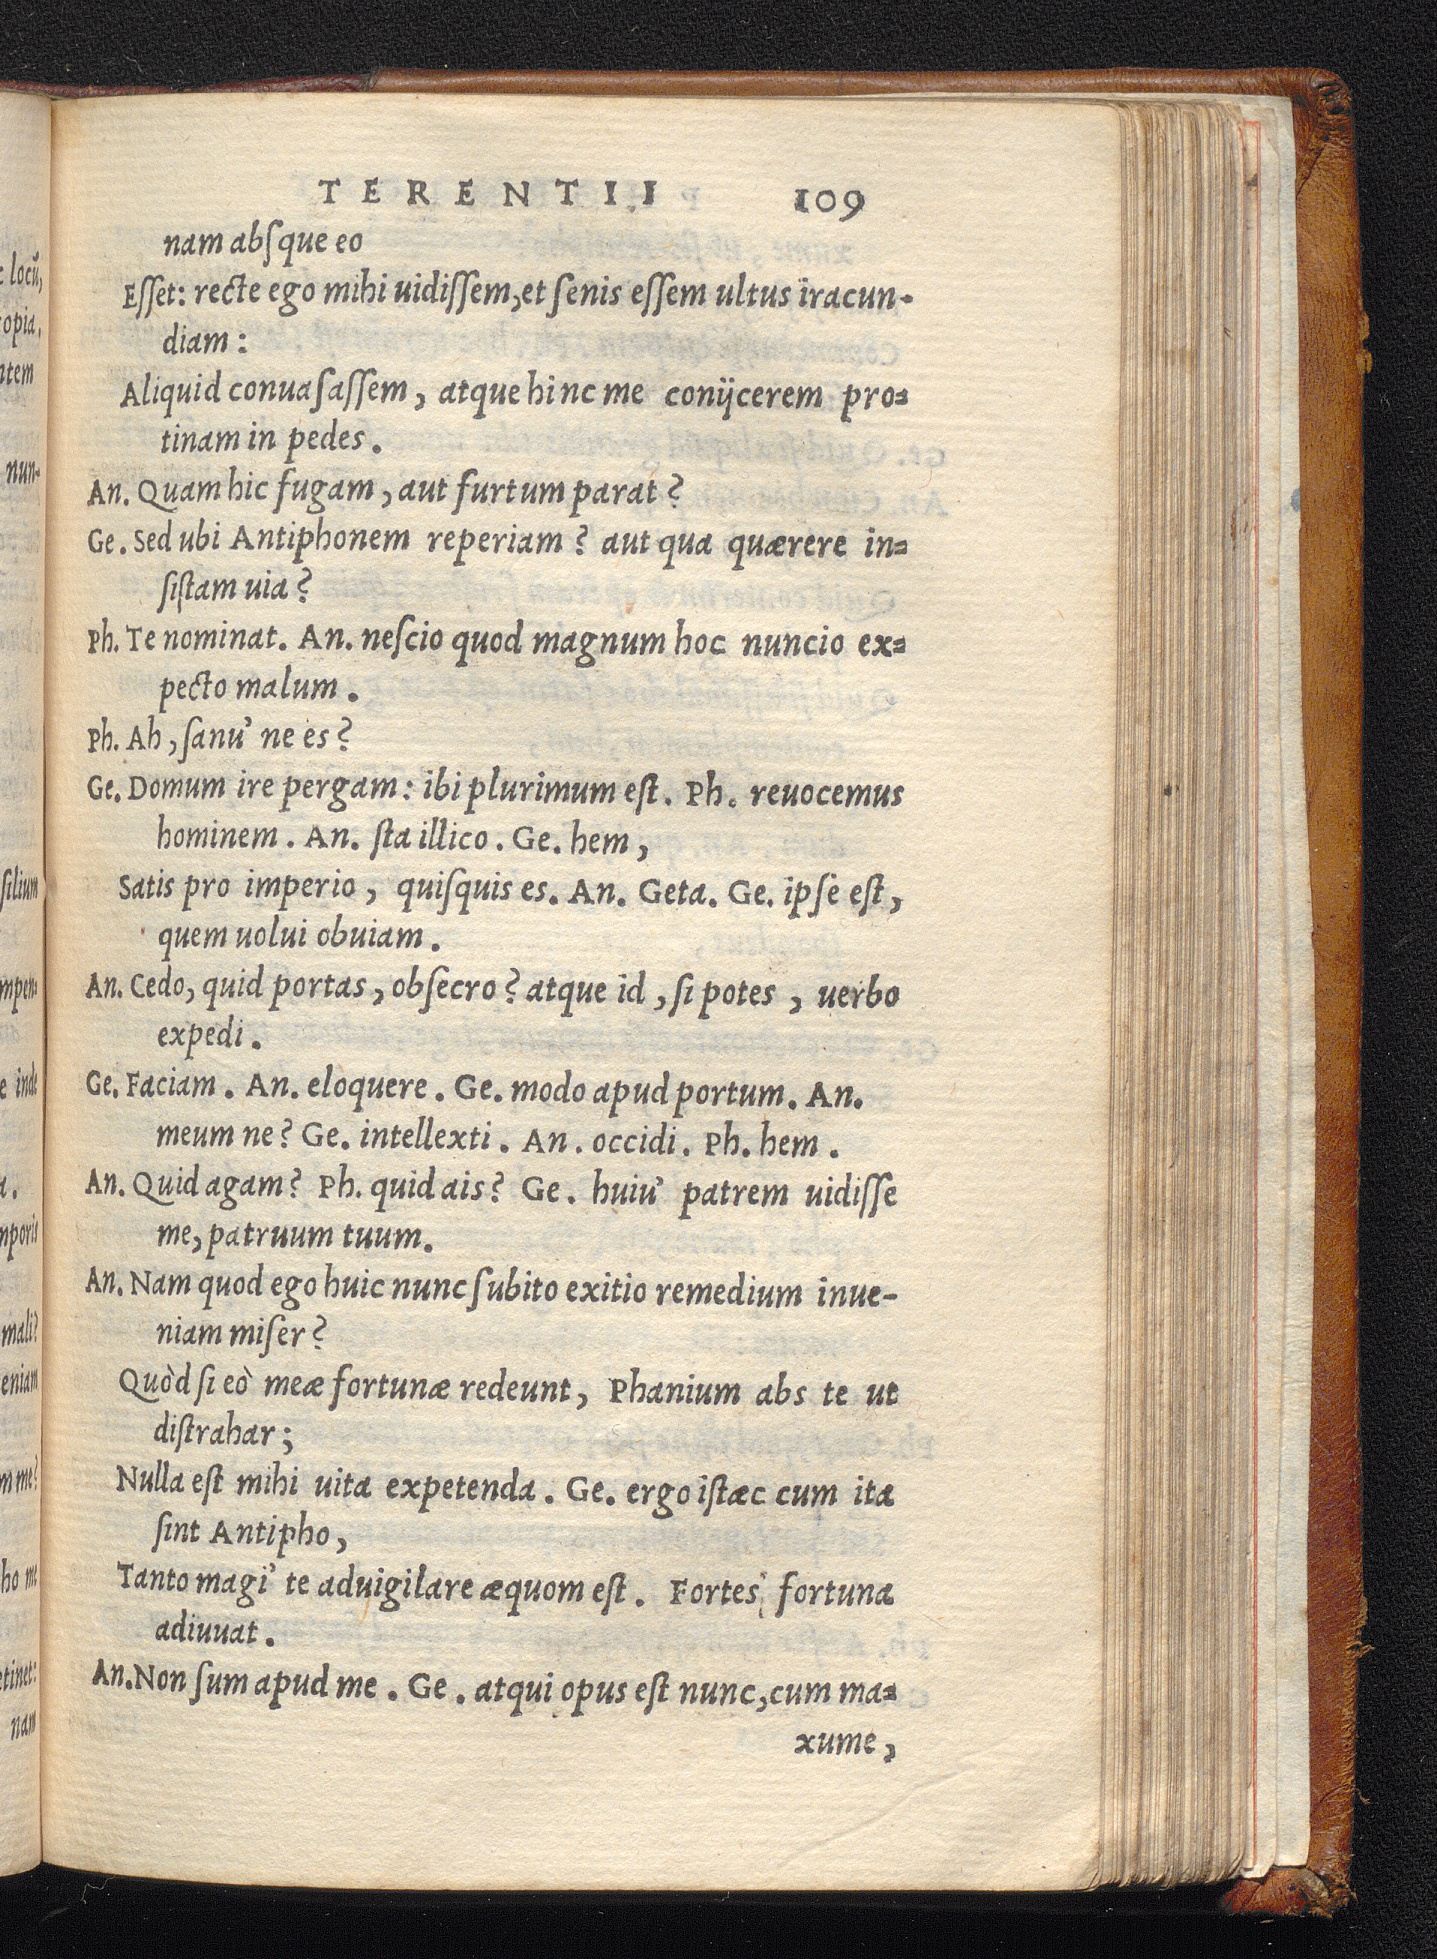 TERENTII 109
nam absque eo
Esset: recte ego mihi uidissem, et senis essem ultus iracun-
diam:
Aliquid conuasassem, atque hinc me coniicerem pro=
tinam in pedes.
An. Quam hic fugam, aut furtum parat?
Ge. Sed ubi Antiphonem reperiam? aut qua quærere in=
sistam uia?
Ph. Te nominat. An. nescio quod magnum hoc nuncio ex=
pecto malum.
Ph. Ah, sanu' ne es?
Ge. Domum ire pergam: ibi plurimum est. Ph. reuocemus
hominem. An. sta illico. Ge. hem,
Satis pro imperio, quisquis es. An. Geta. Ge. ipse est,
quem uolui obuiam.
An. Cedo, quid portas, obsecro? atque id, si potes, uerbo
expedi.
Ge. Faciam. An. eloquere. Ge. modo apud portum. An.
meum ne? Ge. intellexti. An. occidi. Ph. hem.
An. Quid agam? Ph. quid ais? Ge. huiu' patrem uidisse
me, patruum tuum.
An. Nam quod ego huic nunc subito exitio remedium inue-
niam miser?
Quòd si eò meæ fortunæ redeunt, Phanium abs te ut
distrahar;
Nulla est mihi uita expetenda. Ge. ergo istæc cum ita
sint Antipho,
Tanto magi' te aduigilare æquom est. Fortes fortuna
adiuuat.
An. Non sum apud me. Ge. atqui opus est nunc, cum ma=
xume,
locũ,
opia,
ntem
nun-
silium
mpen=
e inde
mporis
mali?
eniam
m me?
ho me
etinet:
nam